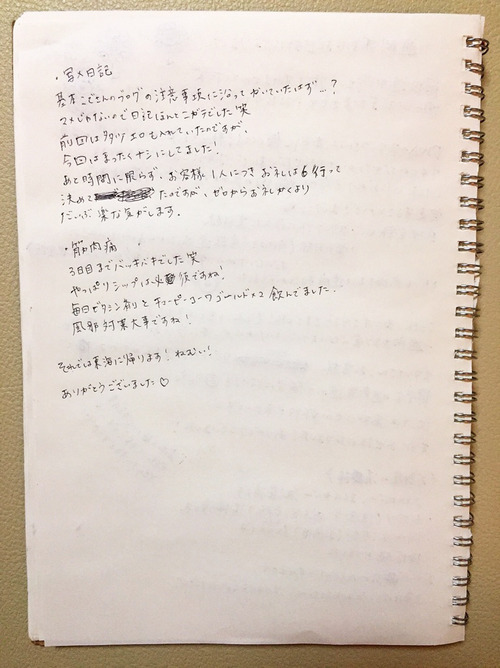 ・写メ日記
基本こでさんのブログの注意事項に沿ってかいていたはず…?
マメじゃないので日記ほんとニガテでした笑
前回は多少エロも入れていたのですが、
今回はまったくナシにしてました!
あと時間に限らず、お客様1人につきお礼は6行って
決めて たのですが、ゼロからお礼かくより
だいぶ楽な気がします。
・筋肉痛
3日目までバッキバキでした笑
やっぱりシップは必須ですね!
毎日ビタミン剤とキューピーコーワゴールド×2 飲んでました。
風邪対策大事ですね!
それでは東海に帰ります!ねむい!
ありがとうございました♡